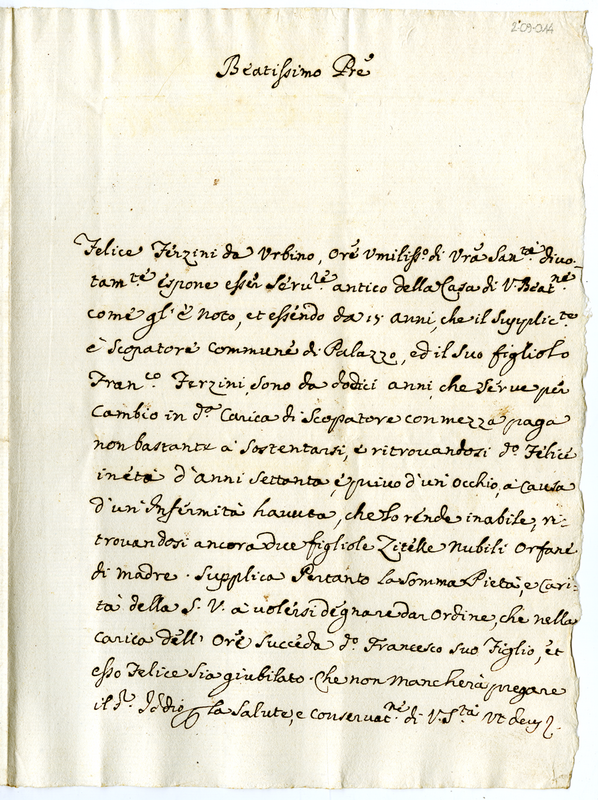 2-09-014
Beatissimo Prē
Felice Terzini da Urbino, Orē Umiliss.o di Vrā San.tē divo-
tam.tē espone esser serv.rē antico della Casa di V. Beat.nē
comē gl' è noto, et essendo da 15 anni, che il Supplic.tē
è Scopatorē Communē di Palazzo, ed il suo figliolo
Fran.co Terzini, sono da dodici anni, che serve per
Cambio in d.a Carica di Scopatore con mezza paga
non bastante à sostentarsi, e ritrovandosi d.o Felicē
in età d'anni settanta, e privo d'un'occhio, à causa
d'un'Infermità havuta, che lo rende inabile, ri-
trovandosi ancora due figliole Zitelle Nubili Orfanē
di madre. Supplica Pertanto la somma Pietà, e Cari-
tà della S. V. à volersi degnare dar Ordine, che nella
carica dell' Orē succeda d.o Francesco suo Figlio, et
esso Felice sia giubilato. Che non mancherà pregare
il S.r Iddio p la salute, e conservat.nē di V. S.tà Ut deus